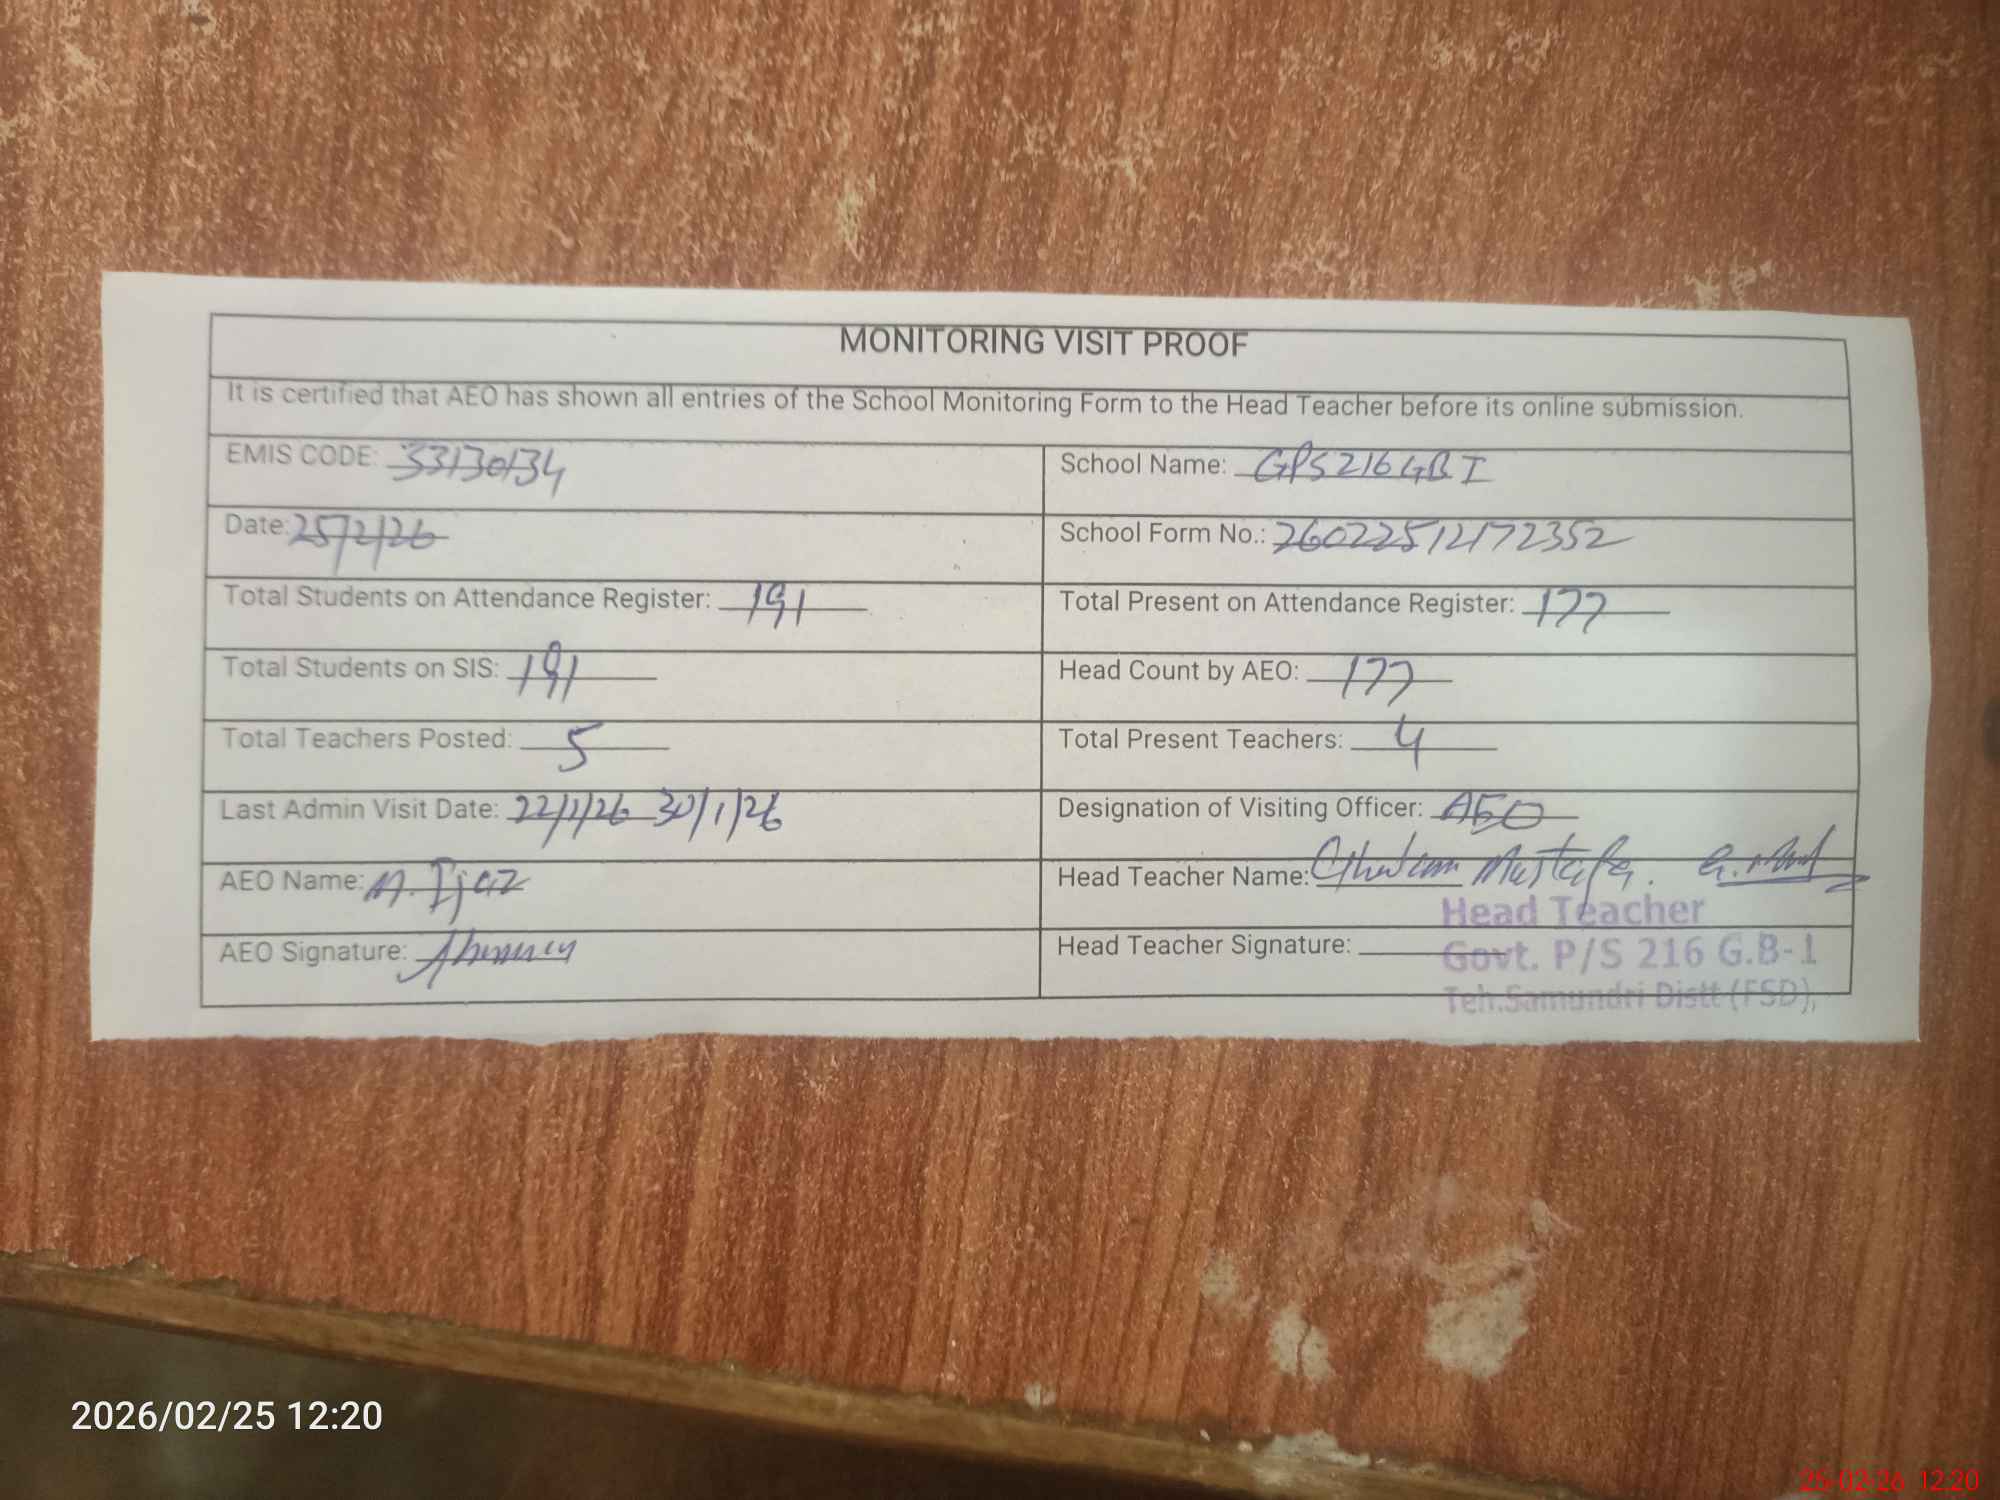 MONITORING VISIT PROOF
It is certified that AEO has shown all entries of the School Monitoring Form to the Head Teacher before its online submission.
EMIS CODE: 33130134
School Name: GPS 216 GB I
Date: 25/2/26
School Form No.: 26022512172352
Total Students on Attendance Register: 191
Total Present on Attendance Register: 177
Total Students on SIS: 191
Head Count by AEO: 177
Total Teachers Posted: 5
Total Present Teachers: 4
Last Admin Visit Date: 22/1/26 30/1/26
Designation of Visiting Officer: AEO
AEO Name: M. Ijaz
Head Teacher Name: Ghulam Mustafa.
AEO Signature:
Head Teacher Signature:
Head Teacher
Govt. P/S 216 G.B-1
Teh.Samundri Distt (FSD),
2026/02/25 12:20
25-02-26 12:20